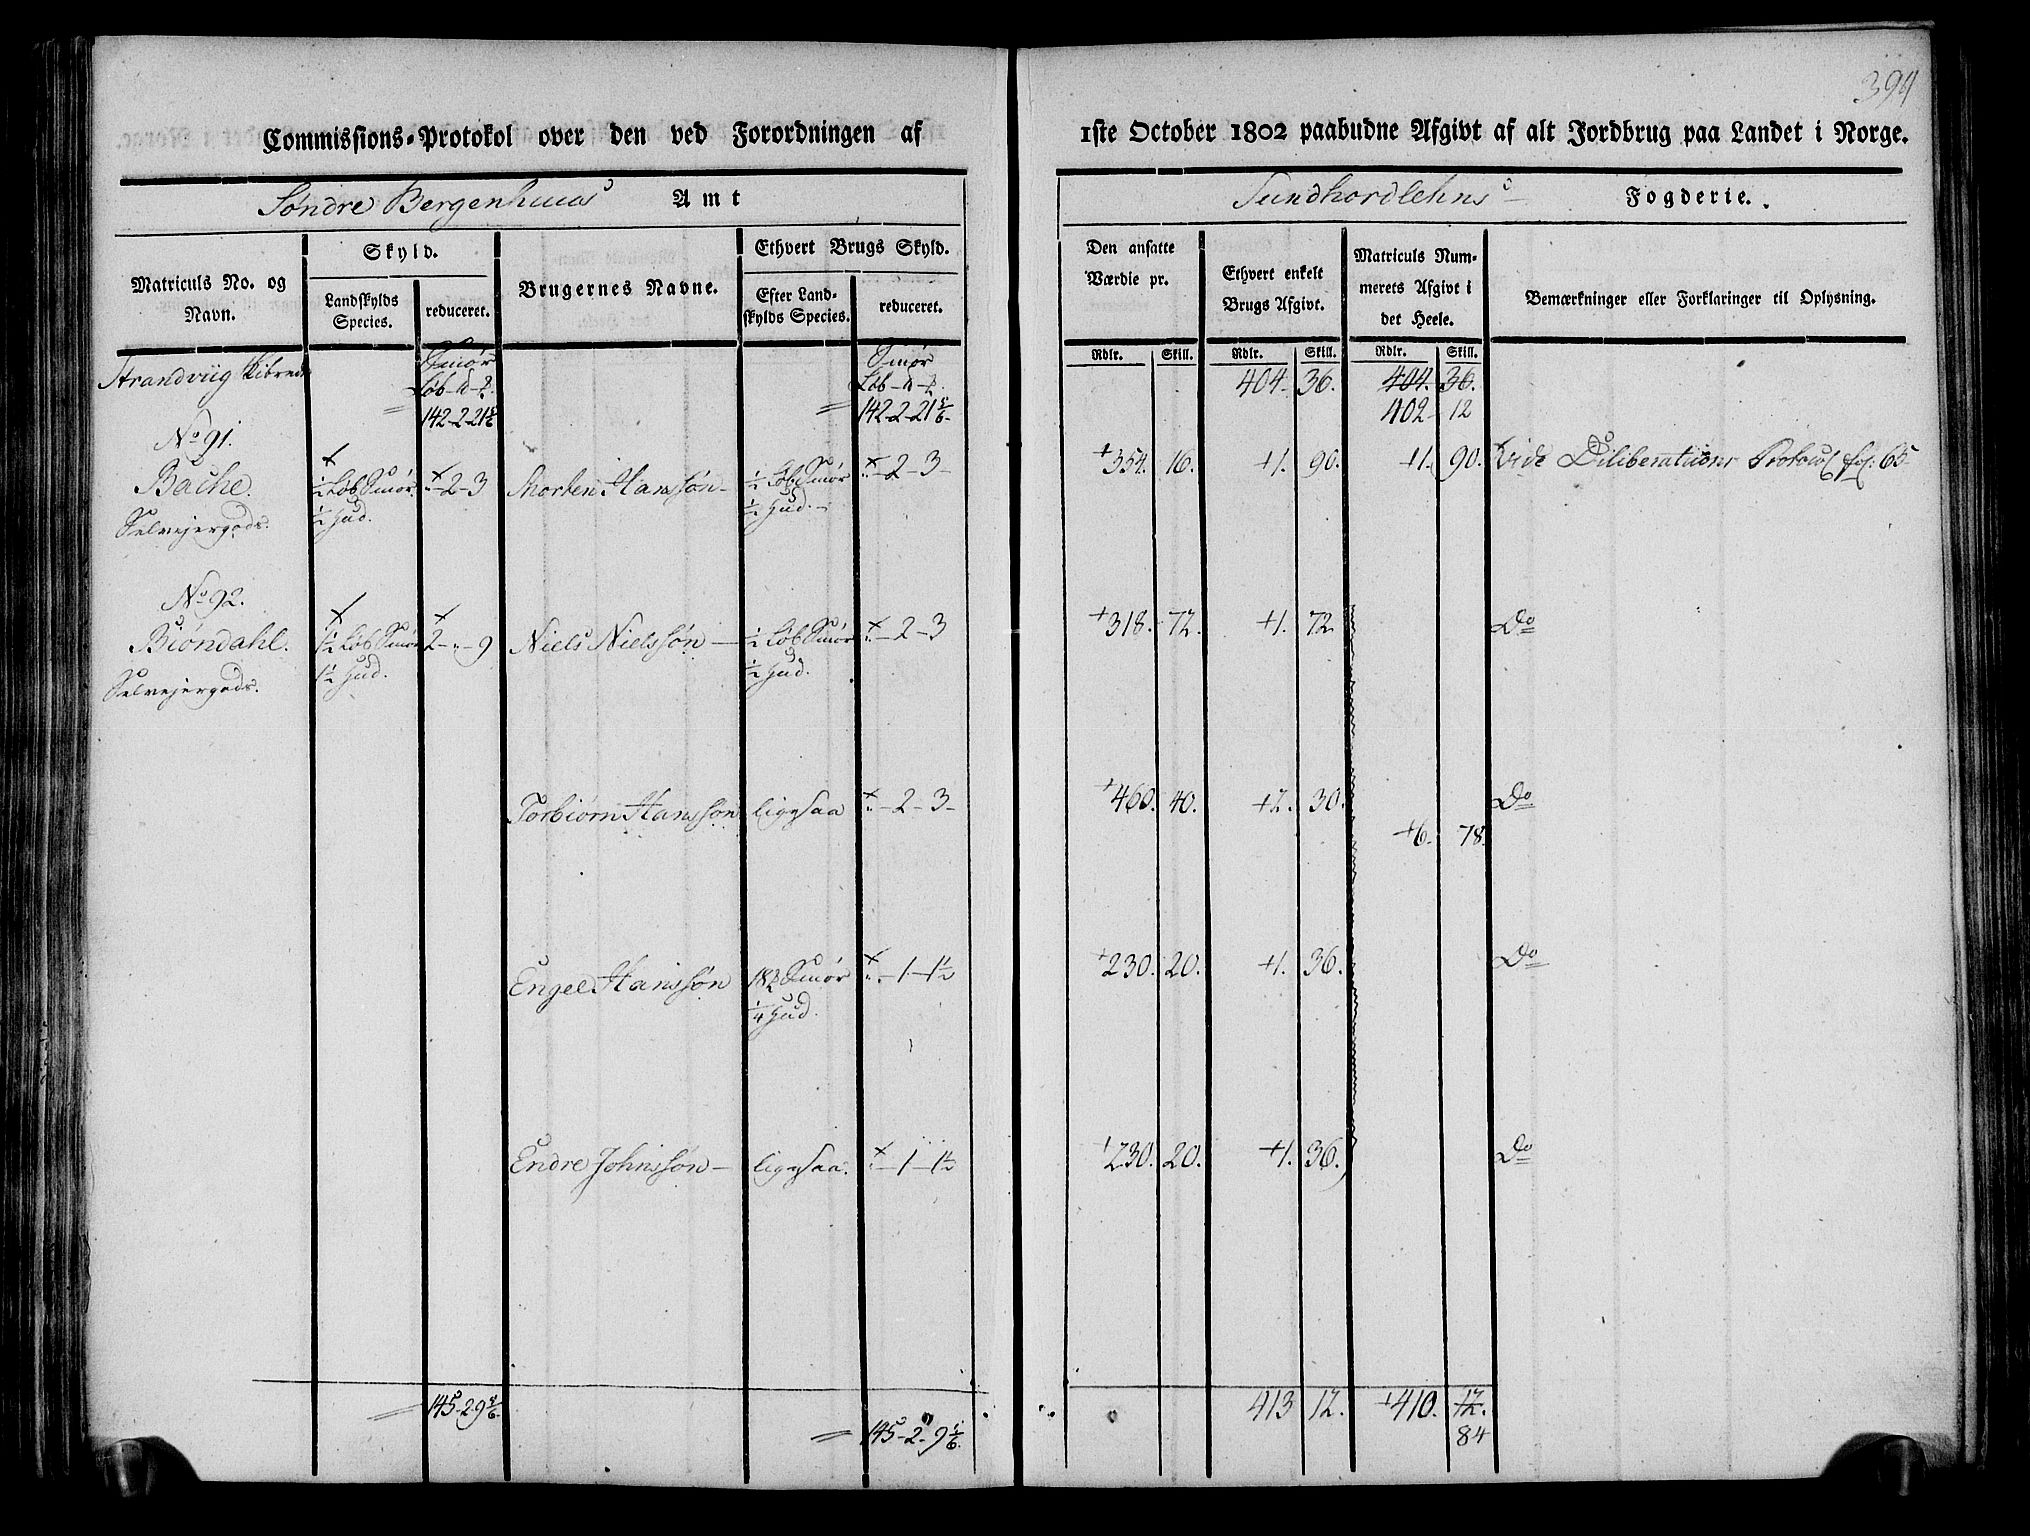 394
Commissions-Protokol over den ved Forordningen af 1ste October 1802 paabudne Afgivt af alt Jordbrug paa Landet i Norge.
Søndre Bergenhuus Amt
Sundhordlehns Fogderie.
Matriculs No. og Navn.
Skyld.
Landskylds Species.
reduceret.
Brugernes Navne.
Ethvert Brugs Skyld.
Efter Landskylds Species.
reduceret.
Den ansatte Værdie pr.
Ethvert enkelt Brugs Afgivt.
Matriculs Nummerets Afgivt i det Heele.
Bemærkninger eller Forklaringer til Oplysning.
Rdlr. Skill. Rdlr. Skill. Rdlr. Skill.
Strandviig Skibrede
Smør Smør
Løb Løb
142-2-21 5/6 142-2-21 5/6 404. 36. 404. 36.
402 12
No 91.
Bache. 1/2 Løb Smør " - 2 - 3 Morten Hanssøn - 1/2 Løb Smør " - 2 - 3 - +354. 16. +1. 90. +1. 90. Vide Diliberations Protocol fol: 65
Selvejergods. 1/2 Hud. 1/2 Hud. -
No 92.
Biøndahl. 1 1/2 Løb Smør 2 - " - 9 Niels Nielssøn - 1/2 Løb Smør " - 2 - 3 +318. 72. +1. 72 Do
Selvejergods. 1 1/2 Hud. 1/2 Hud.
Torbiørn Hanssøn ligesaa " - 2 - 3 - +460. 40. +2. 30. Do
+6. 78.
Engel Hanssøn 18 Smør " - 1 - 1 1/2 +230. 20. +1. 36. Do
1/4 Hud.
Endre Johnssøn - ligesaa. " - 1 - 1 1/2 +230. 20. +1. 36. Do
145-2-9 5/6 413 12. +410. 12.
145-2-9 5/6. 84